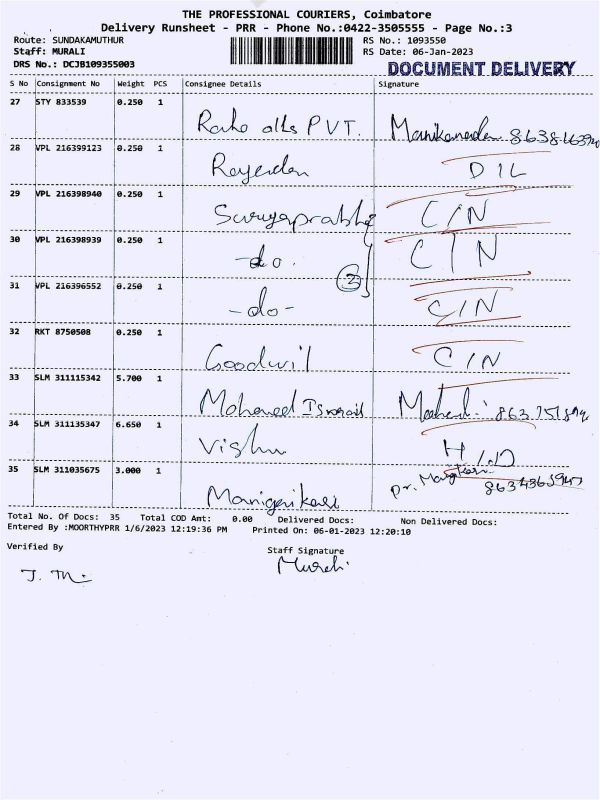 THE PROFESSIONAL COURIERS, Coimbatore
Delivery Runsheet - PRR - Phone No.:0422-3505555 - Page No.:3
Route: SUNDAKAMUTHUR RS No.: 1093550
Staff: MURALI RS Date: 06-Jan-2023
DRS No.: DCJB109355003 DOCUMENT DELIVERY
S No Consignment No Weight PCS Consignee Details Signature
27 STY 833539 0.250 1
PVT.
28 VPL 216399123 0.250 1
D I L
29 VPL 216398940 0.250 1
Suryaprabha C/N
30 VPL 216398939 0.250 1
-do. C/N
3
31 VPL 216396552 0.250 1
-do- C/N
32 RKT 8750508 0.250 1
Goodwil C/N
33 SLM 311115342 5.700 1
Mohamed Ismail
34 SLM 311135347 6.650 1
Vishnu H/D
35 SLM 311035675 3.000 1
Total No. Of Docs: 35 Total COD Amt: 0.00 Delivered Docs: Non Delivered Docs:
Entered By :MOORTHYPRR 1/6/2023 12:19:36 PM Printed On: 06-01-2023 12:20:10
Verified By Staff Signature
Murali